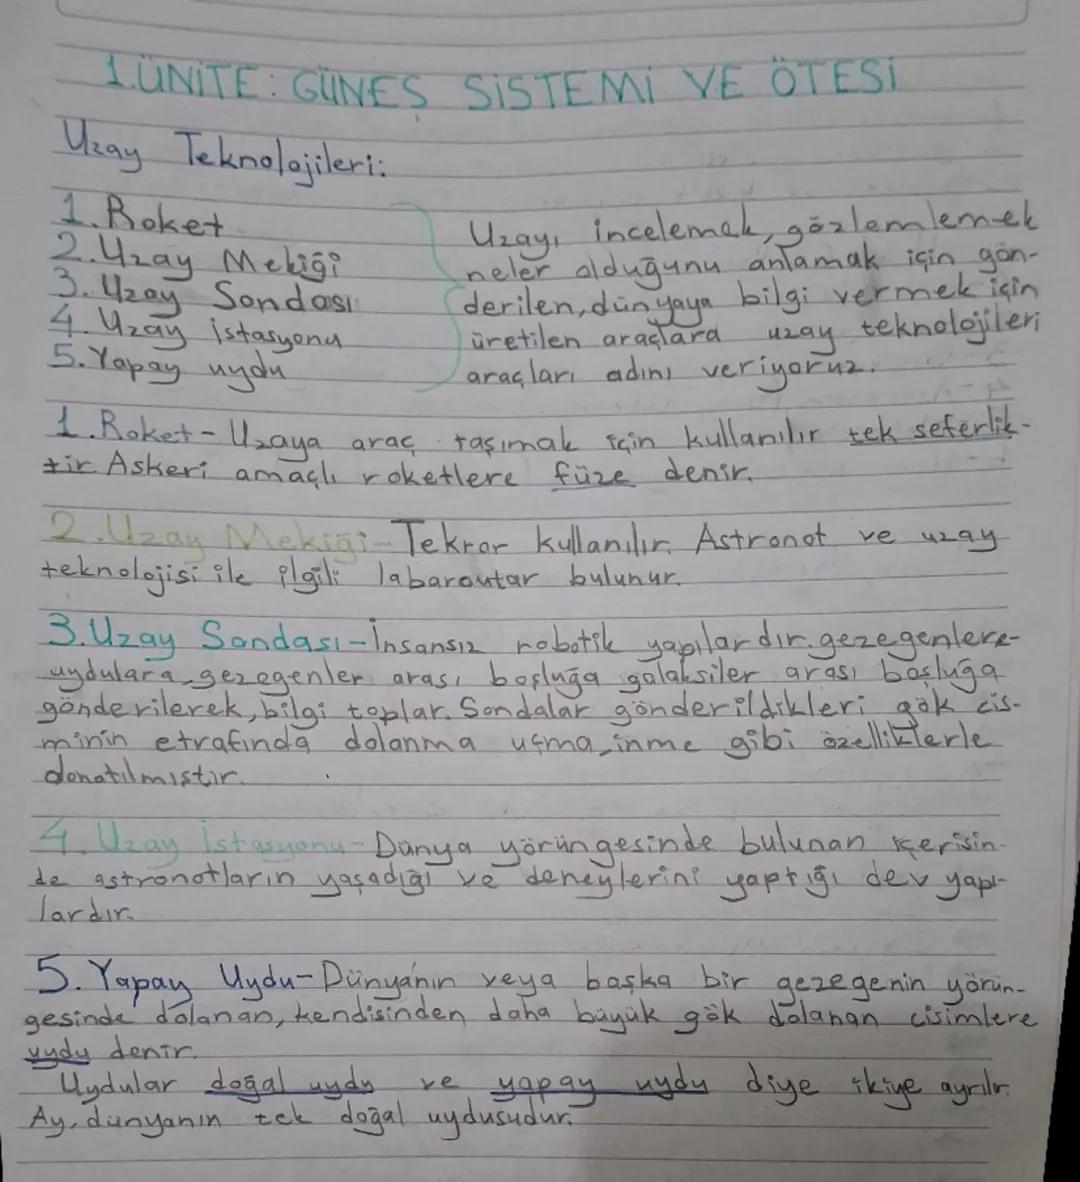 1.ÜNİTE: GÜNEŞ SİSTEMİ VE ÖTESİ
Uzay Teknolojileri:
1.Roket
2.Uzay Mekiği
3.Uzay Sondası
4.Uzay istasyonu
5.Yapay uydu
Uzayı incelemek, gözlemlemek
neler olduğunu anlamak için gön-
derilen, dünyaya bilgi vermek için
üretilen araçlara uzay teknolojileri
araçları adını veriyoruz.
1.Roket-Uzaya araç taşımak için kullanılır tek seferlik-
tir Askeri amaçlı roketlere füze denir.
2.Uzay Mekiği-Tekrar kullanılır. Astronot ve uzay
teknolojisi ile ilgili labaroutar bulunur.
3.Uzay Sondası-İnsansız robotik yapılardır.gezegenlere-
uydulara-gezegenler arası boşluğa galaksiler arası boşluğa
gönderilerek, bilgi toplar. Sondalar gönderildikleri gök cis-
minin etrafında dolanma uçma-inme gibi özelliklerle
donatılmıştır.
4.Uzay İstasyonu-Dünya yörüngesinde bulunan içerisin-
de astronotların yaşadığı ve deneylerini yaptığı dev yapı-
lardır.
5.Yapay Uydu-Dünya'nın veya başka bir gezegenin yörün-
gesinde dolanan, kendisinden daha büyük gök dolanan cisimlere
uydu denir.
Uydular doğal uydu ve yapay uydu diye ikiye ayrılır.
Ay, dünyanın tek doğal uydusudur.